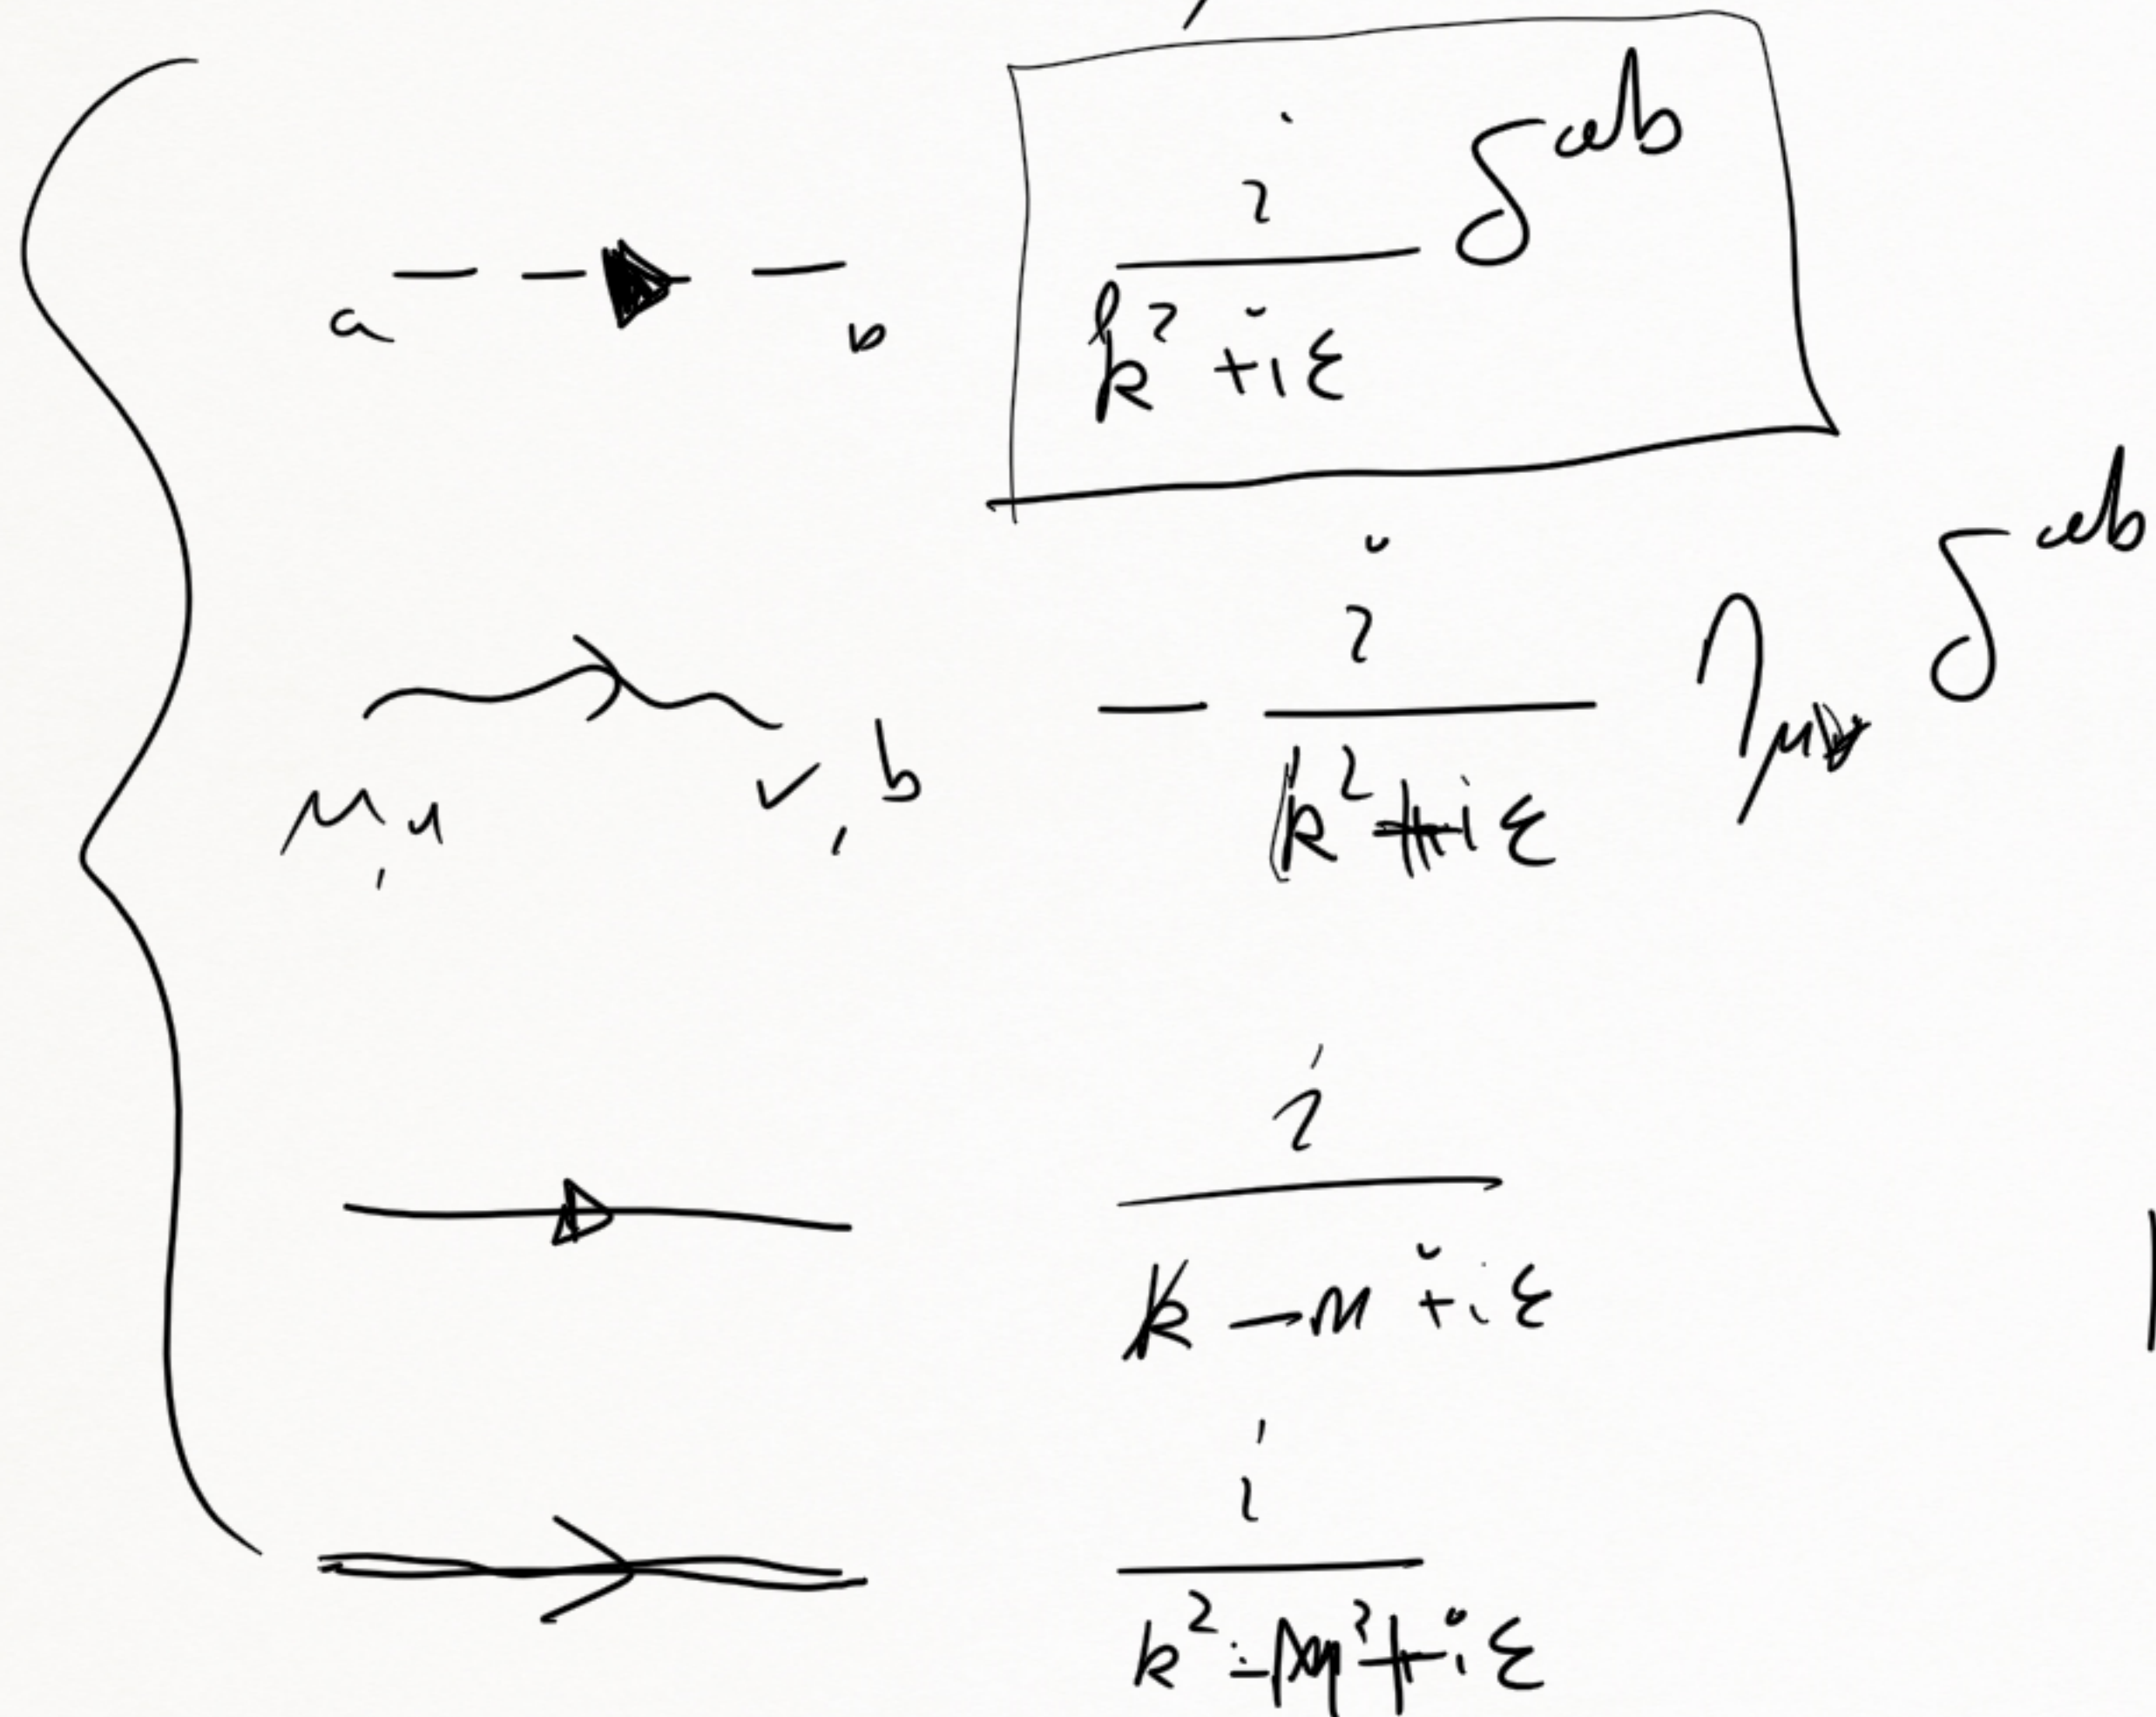 a b i/(k² + iε) δ^{ab}
μ, a ν, b − i/(k² + iε) η_{μν} δ^{ab}
i/(k̸ − m + iε)
i/(k² − m² + iε)